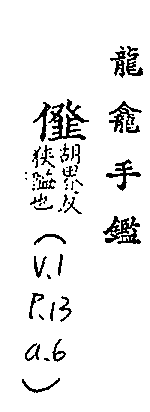 龍龕手鑑
㒠 胡界反
狹隘也
(
V.1
P.13
a.6
)